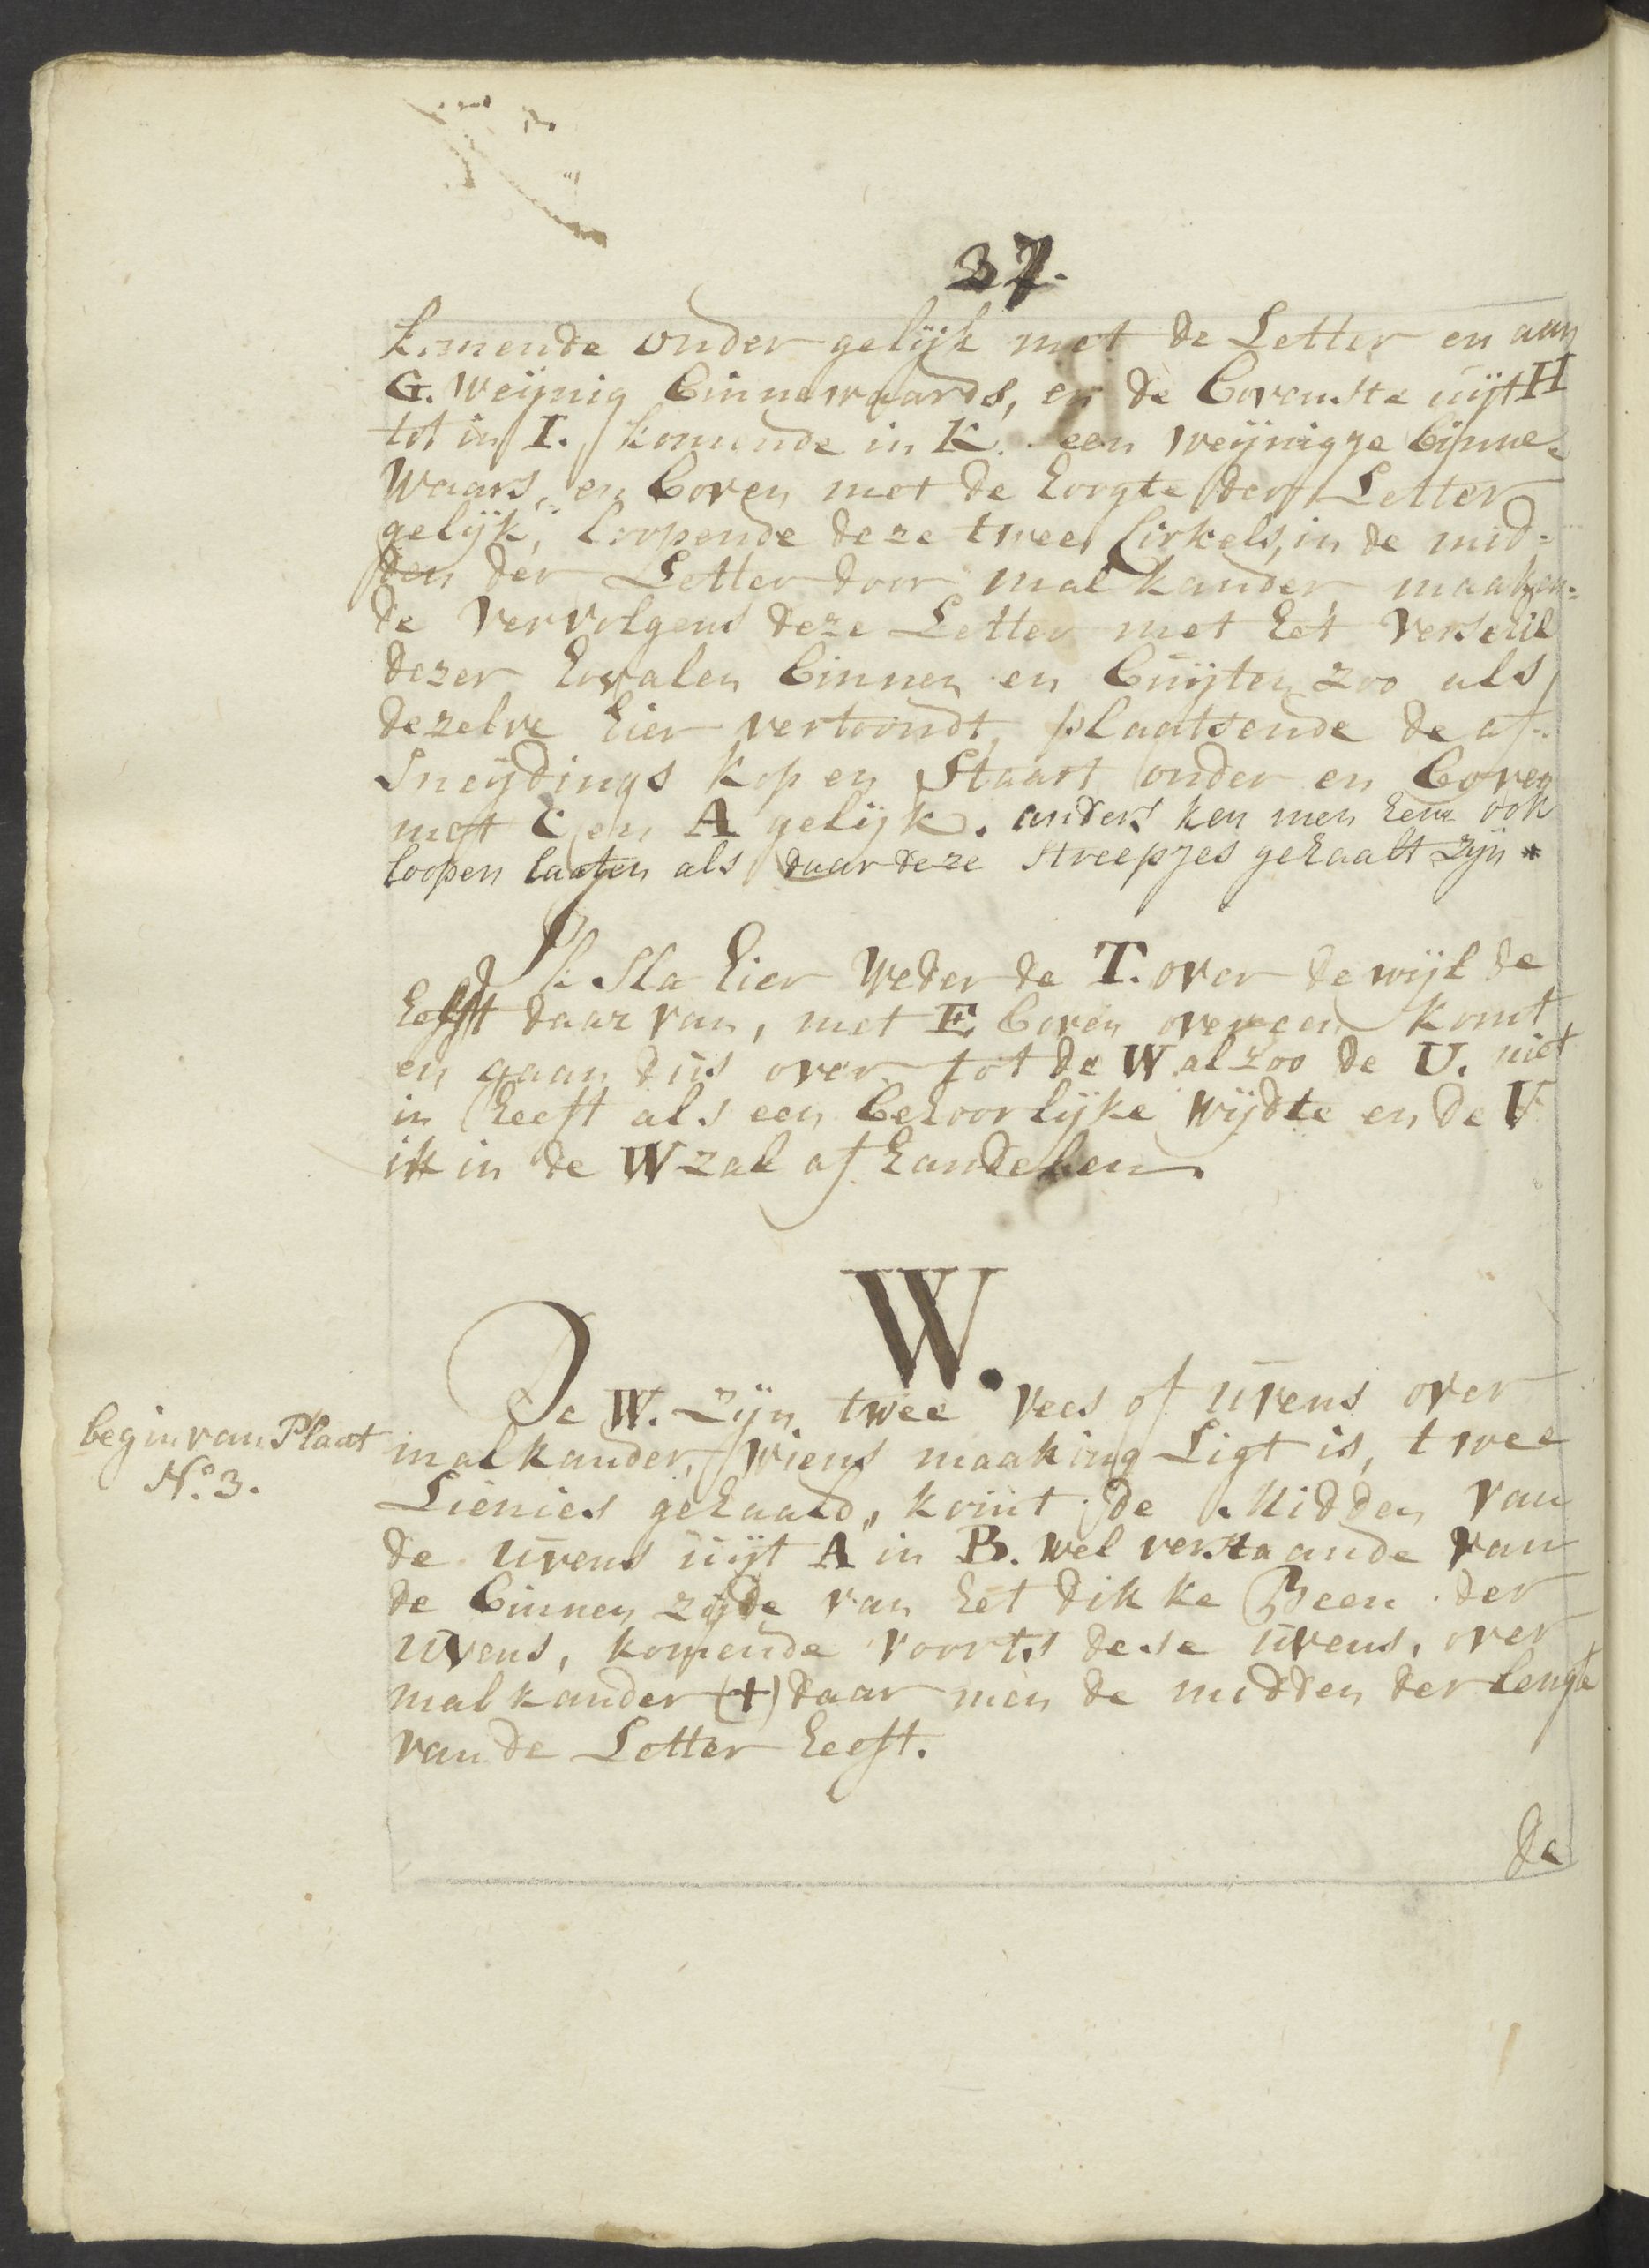 37.
komende onder gelijk met de Letter en aan
G. weijnig binnewaards, en de bovenste uijt H
tot in I. komende in K. een weijnigje binne-
waars, en boven met de hoogte der Letter
gelijk, loopende deze twee Cirkels, in de mid-
den der Letter door malkander, maaken-
de vervolgens deze Letter met het verschil
dezer hovalen binnen en buijten zoo als
dezelve hier vertoondt, plaatsende de af-
sneijdings kop en Staart onder en boven
mett C en A gelijk. anders ken men hem ook
loopen laaten als daar deze streepjes gehaalt zijn *
Ik Sla hier weder de T. over dewijl de
helft daar van, met E boven overeen komt,
en gaan dus over tot de W alzoo de U. niet
in heeft als een behoorlijke wijdte en de V
ik in de W zal af handelen.
W.
De W. zijn twee vees of uvens over
malkander, wiens maaking Ligt is, twee
Lienies gehaald, komt de Midden van
de uvens uijt A in B. wel verstaande van
de binnen zijde van het dikke Been der
uvens, komende voorts dese uvens, over
malkander (+) daar men de midden der lengte
van de Letter heeft.
begin van Plaat
No. 3.
de